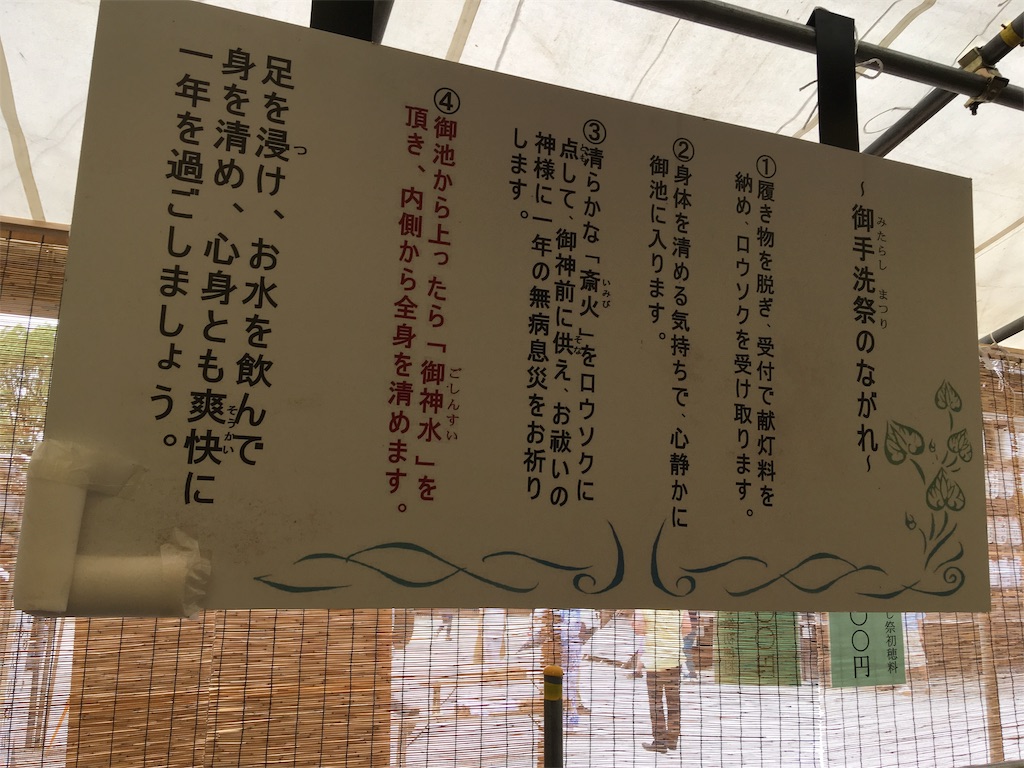 ～御手洗祭のながれ～
みたらし まつり
①履き物を脱ぎ、受付で献灯料を
納め、ロウソクを受け取ります。
②身体を清める気持ちで、心静かに
御池に入ります。
③清らかな「斎火」をロウソクに
いみび
点して、御神前に供え、お祓いの
とも
そな
神様に一年の無病息災をお祈り
します。
④御池から上ったら「御神水」を
ごしんすい
頂き、内側から全身を清めます。
足を浸け、お水を飲んで
つ
身を清め、心身とも爽快に
そうかい
一年を過ごしましょう。
し祭初穂料
〇〇円
〇〇円